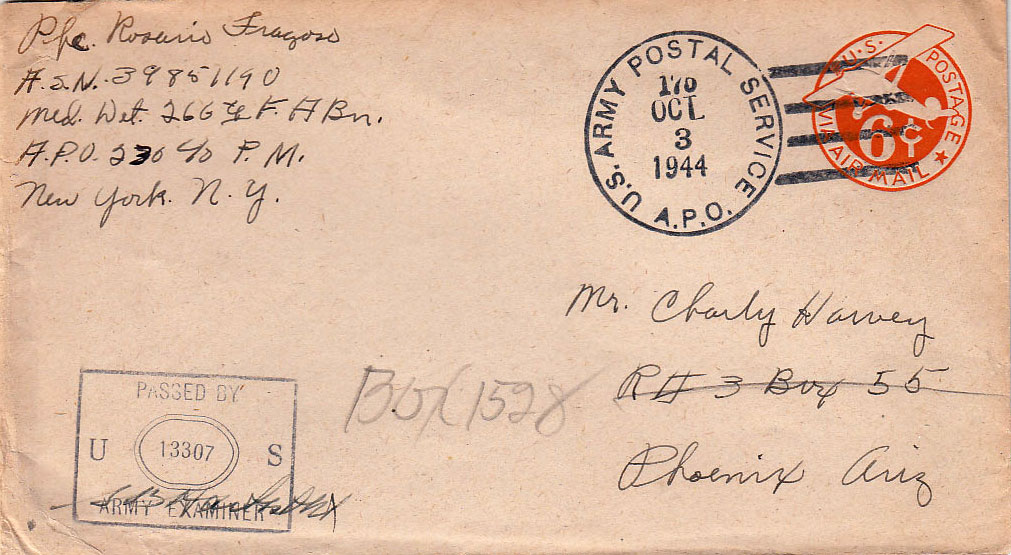 Pfc. Rosario Fragoso
A.S.N. 39851190
Med. Det. 266 F.A Bn.
A.P.O. 230 c/o P.M.
New York. N.Y.
U.S. ARMY POSTAL SERVICE
170
OCT
3
1944
A.P.O.
U.S. POSTAGE
6¢
VIA AIR MAIL
Mr. Charly Harvey
Rt 3 Box 55
Box 1528
Phoenix Ariz
PASSED BY
U 13307 S
ARMY EXAMINER